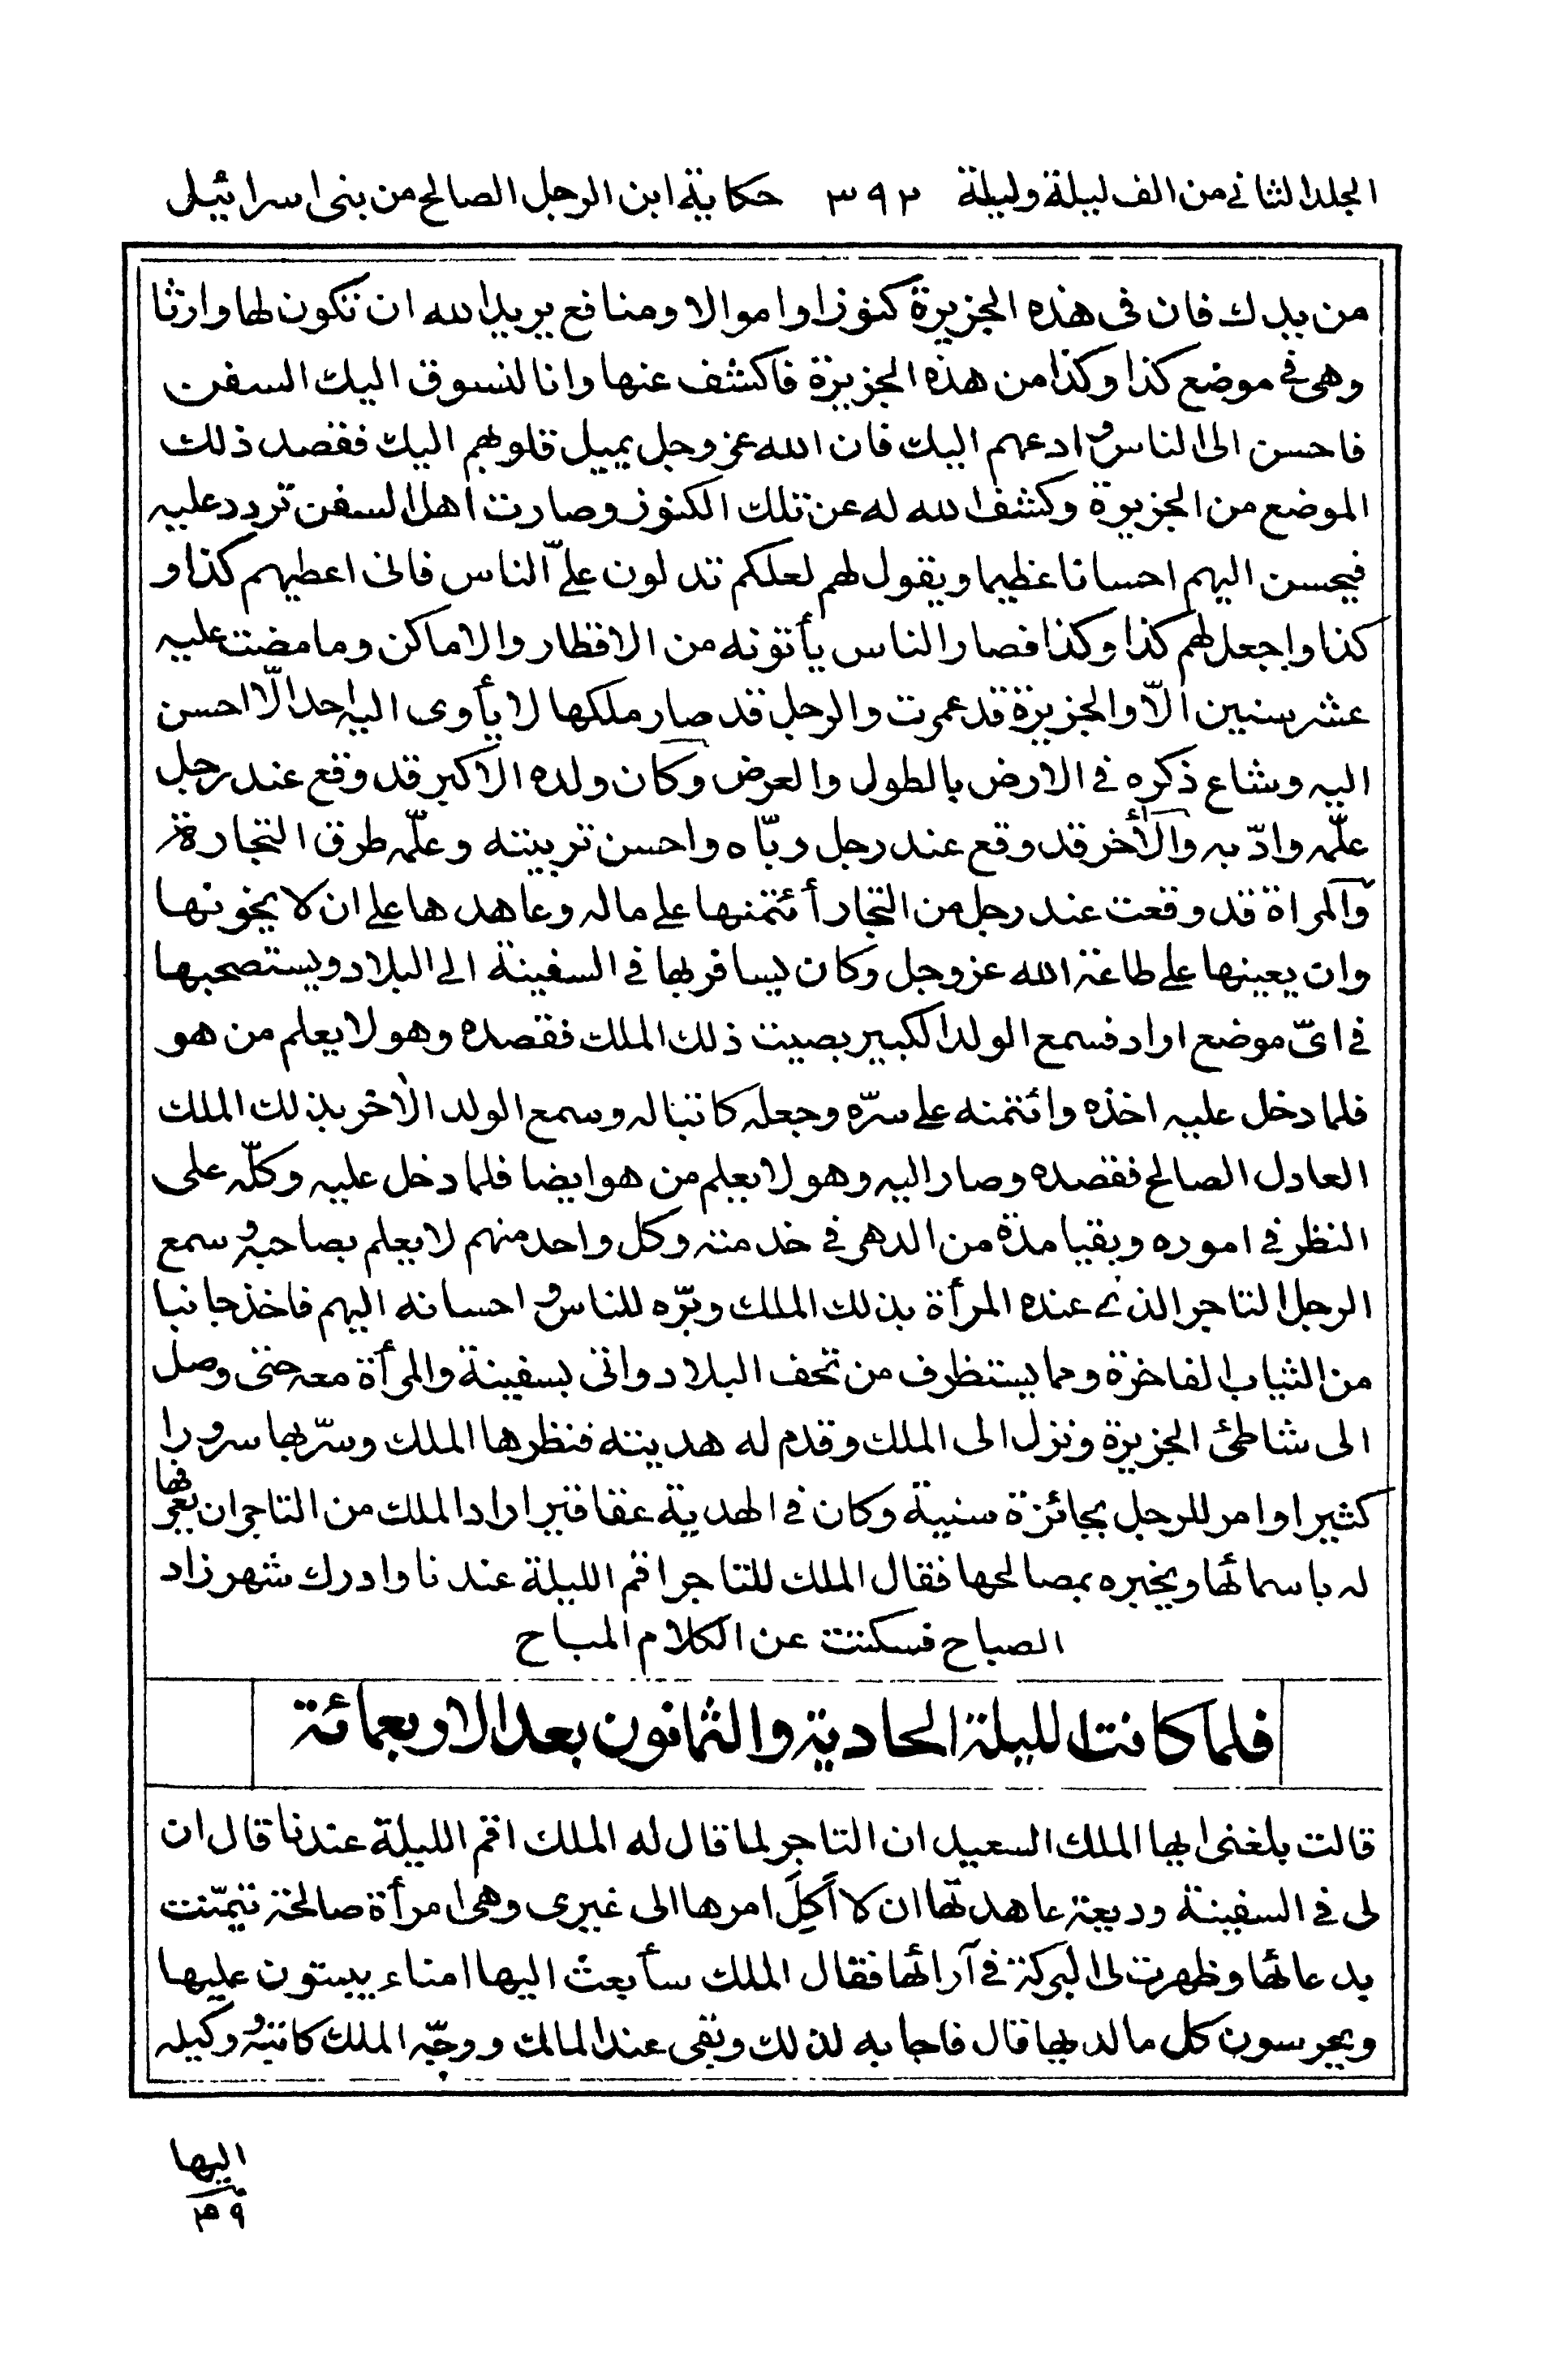 الجلد الثاني من الف ليلة وليلة ٣٩٢ حكاية ابن الرجل الصالح من بنى اسرائيلى
من بدك فان فى هذه الجزيرة كنوزا واموالا ومنافع يريد الله ان تكون لها وارثا
وهى في موضع كذا وكذا من هذه الجزيرة فاكشف عنها وانا لنسوق اليك السفن
فاحسن الى الناس وادعهم اليك فان الله عز وجل يميل قلوبهم اليك فقصد ذلك
الموضع من الجزيرة وكشف الله له عن تلك الكنوز وصارت اهل السفن تردد عليه
فيحسن اليهم احسانا عظيما ويقول لهم لعلكم تدلون علىّ الناس فانى اعطيهم كذا و
كذا واجعل لهم كذا وكذا فصار الناس يأتونه من الاقطار والاماكن وما مضت عليه
عشر سنين الّا والجزيرة قد عمرت والرجل قد صار ملكها لا يأوى اليه احد الّا احسن
اليه وشاع ذكره في الارض بالطول والعرض وكان ولده الاكبر قد وقع عند رجل
علّمه وادّبه والآخر قد وقع عند رجل ربّاه واحسن تربيته وعلّمه طرق التجارة
والمراة قد وقعت عند رجل من التجار أئتمنها على ماله وعاهدها على ان لا يخونها
وان يعينها على طاعة الله عز وجل وكان يسافر بها في السفينة الى البلاد ويستصحبها
في اىّ موضع اراد فسمع الولد الكبير بصيت ذلك الملك فقصده وهو لا يعلم من هو
فلما دخل عليه اخذه وائتمنه على سرّه وجعله كاتبا له وسمع الولد الآخر بذلك الملك
العادل الصالح فقصده وصار اليه وهو لا يعلم من هو ايضا فلما دخل عليه وكلّه على
النظر في اموره وبقيا مدة من الدهر في خدمته وكل واحد منهم لا يعلم بصاحبه وسمع
الرجل التاجر الذي عنده المرأة بذلك الملك وبرّه للناس واحسانه اليهم فاخذ جانبا
من الثياب الفاخرة ومما يستظرف من تحف البلاد واتى بسفينة والمرأة معه حتى وصل
الى شاطئ الجزيرة ونزل الى الملك وقدم له هديته فنظرها الملك وسرّ بها سرورا
كثيرا وامر للرجل بجائزة سنية وكان في الهدية عقاقير اراد الملك من التاجر ان يعرفها
له باسمائها ويخبره بمصالحها فقال الملك للتاجر اقم الليلة عندنا وادرك شهرزاد
الصباح فسكتت عن الكلام المباح
فلما كانت الليلة الحادية والثمانون بعد الاربعمائة
قالت بلغنى ايها الملك السعيد ان التاجر لما قال له الملك اقم الليلة عندنا قال ان
لى في السفينة وديعة عاهدتها ان لا أكِلَ امرها الى غيرى وهى امرأة صالحة تيمّنت
بدعائها وظهرت لى البركة في آرائها فقال الملك سأبعث اليها امناء يبيتون عليها
ويحرسون كل ما لديها قال فاجابه لذلك وبقى عند الملك ووجّه الملك كاتبه ووكيله
اليها
٤٩